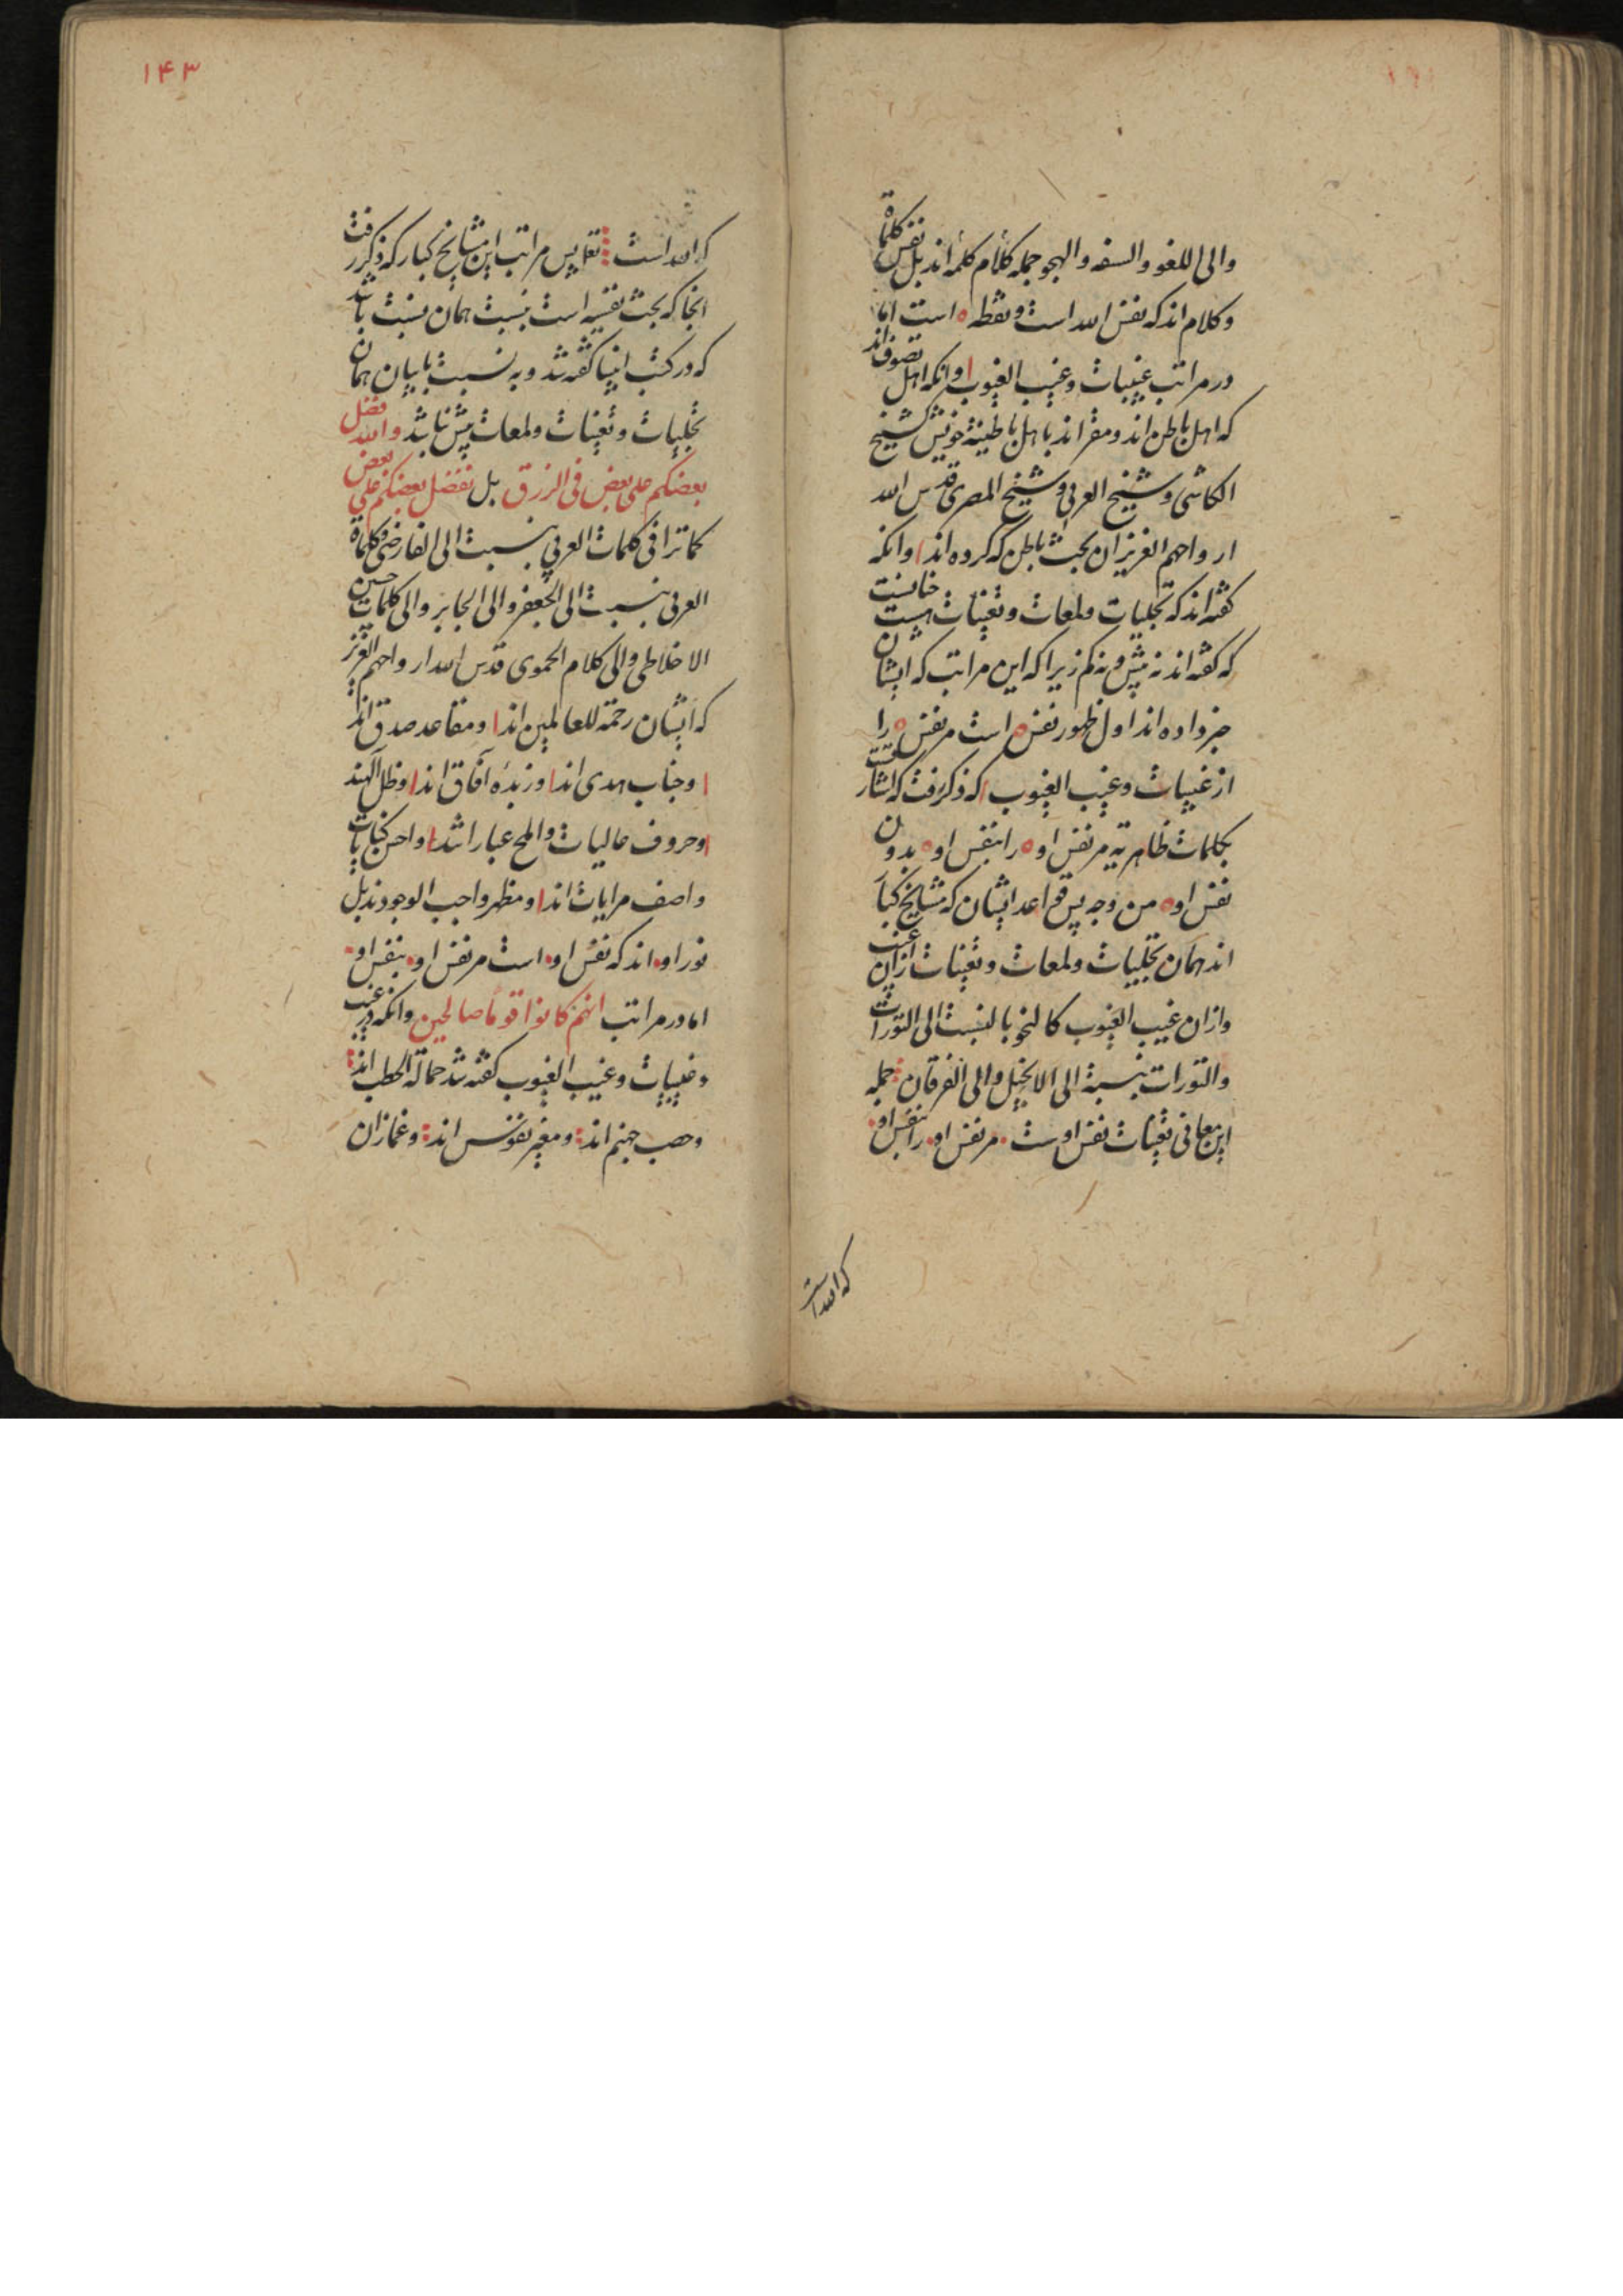 والی اللغو والسفه والهجو جمله کلام کلمه اند بل نفس کلمة
و کلام اند که نفس الله است و نقطه ه است اما
در مراتب غیبیات و غیب الغیوب و انکه اهل تصوف اند
که اهل باطن اند و مقر اند با هل باطنیة خویش کشیخ
الکاشی و شیخ العربی و شیخ المصری قدس الله
ارواحهم العزیز ان بحث باطن که کرده اند و انکه
کفته اند که تجلیات و لمعات و تعینات هست چنانست
که کفته اند نه بیش و نه کم زیرا که این مراتب که ایشان
خبر داده اند اول ظهور نفس ه است مر نفس ه را
از غیبیات و غیب الغیوب که ذکر رفت که اشارت
بکلمات ظاهریه مر نفس او ه را بنفس او ه بدون
نفس او ه من وجه پس قواعد ایشان که مشایخ کبار
اند همان تجلیات و لمعات و تعینات ازان غیب
وازان غیب الغیوب کالنحو بالنسبت الی التورات
والتورات بنسبة الی الانجیل والی الفرقان جمله
این معانی تعینات نفس اوست مر نفس او را بنفس او
که الله است
۱۴۳
که الله است تعا پس مراتب این مشایخ کبار که ذکر رفت
انجا که بحث نقیبه است بنسبت همان نسبت باشد
که در کتب انبیا کفته شد و به نسبت با بیان همان
تجلیات و تعینات و لمعات بیش نباشد والله فضل
بعضکم علی بعض فی الرزق بل نفضل بعضکم علی بعض
کما ترا فی کلمات العربی بنسبت الی الفارضی و کلماة
العربی بنسبت الی الجعفر والی الجابر والی کلمات حسین
الاخلاطی والی کلام الحموی قدس الله ارواحهم العزیز
که ایشان رحمة للعالمین اند و مقاعد صدق اند
و جناب هدی اند و زبده آفاق اند و ظل الهند
و حروف عالیات و املح عبارا شد و احسن کنایات
واصف مرایات اند و مظهر واجب الوجودند بل
نور او اند که نفس او است مر نفس او بنفس او
اما در مراتب انهم کانوا قوما صالحین و انکه در غیب
و غیبیات و غیب الغیوب کفته شد حمالة الحطب اند
و حصب جهنم اند و مغیر نفوس اند و غمازان